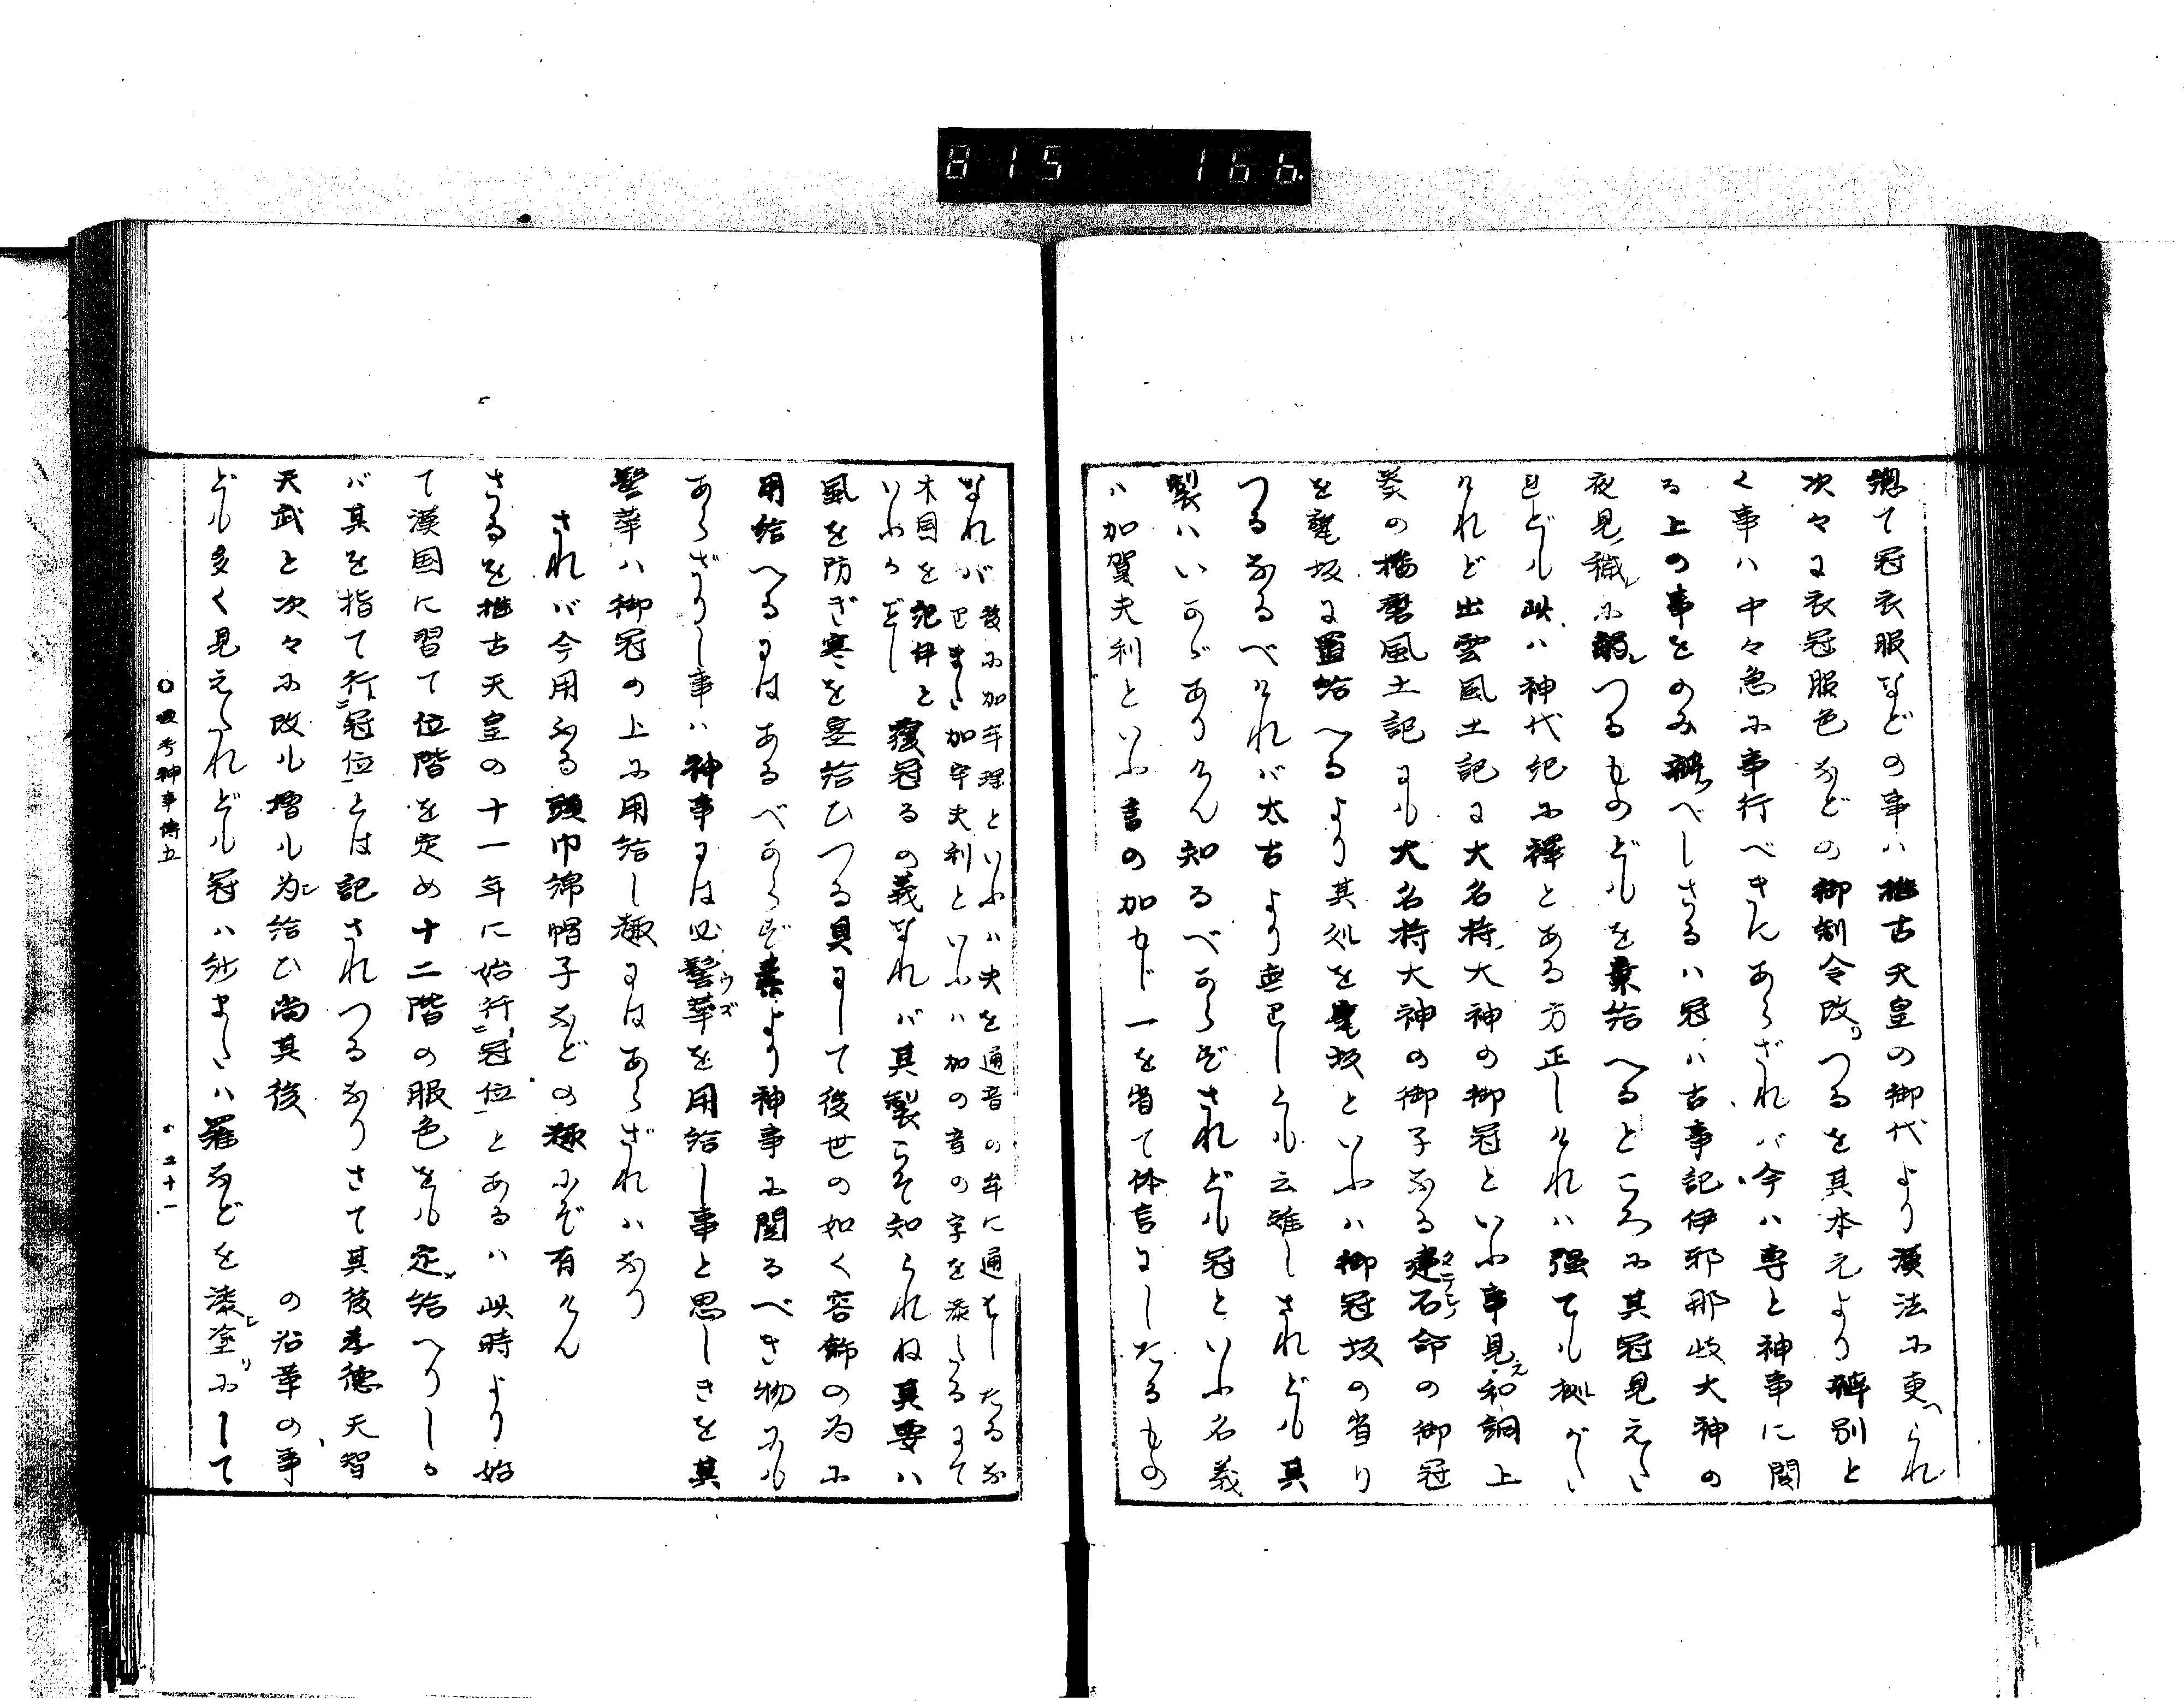 815 166.
總て冠衣服などの事ハ推古天皇の御代より漢法に更へられ
次々に衣冠服色などの御制令改りつるを其本元より辨別と
く事ハ中々急に事行べきにあらざれバ今ハ専と神事に関
る上の事をのみ辨べしさるハ冠ハ古事記伊邪那岐大神の
夜見ノ穢レに觸レつるものどもを棄給へるところに其冠見えた
れども此ハ神代紀に褌とある方正しければ强ても據がた
けれど出雲風土記に大名持大神の御冠といふ事見え和銅上
奏の播磨風土記にも大名持大神の御子なる建石命の御冠
を甕坂に置給へるより其処を甕坂といふハ御冠坂の省り
つるなるべければ太古より無しとも云難しされども其
製ハいかゞありけん知るべからずされども冠といふ名義
ハ加賀夫利といふ言の加もじ一を省て体言にしたるもの
なれバ
後に加牟理といふハ夫を通音の牟に通はしたるな
り また加宇夫利といふハ加の音の字を添たるにて
木国を紀伊と
いふがごとし
覆冠るの義なれバ其製こそ知られね其要ハ
風を防ぎ寒を塞給ひつる具にして後世の如く容飾の為に
用給へるにはあるべからず素より神事に関るべき物にも
あらざりし事ハ神事には必髻華ウズを用給し事と思しきを其
髻華ハ御冠の上に用給し趣にはあらざれハなり
されバ今用ふる頭巾綿帽子などの趣にぞ有けん
さるを推古天皇の十一年に始行二冠位一とあるハ此時より始
て漢国に習て位階を定め十二階の服色をも定メ給へりしか
バ其を指て行二冠位一とは記されつるなりさて其後孝徳天智
天武と次々に改ル増ル為シ給ひ尚其後 の沿革の事
ども多く見えたれども冠ハ紗または羅などを漆塗リにして
五 二十一